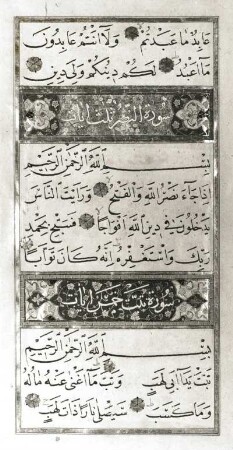 عَابِدٌ مَا عَبَدْتُمْ وَلَا أَنْتُمْ عَابِدُونَ
مَا أَعْبُدُ لَكُمْ دِينُكُمْ وَلِيَ دِينِ
سورة النصر ثلث ايات
بِسْمِ اللَّهِ الرَّحْمٰنِ الرَّحِيمِ
إِذَا جَاءَ نَصْرُ اللَّهِ وَالْفَتْحُ وَرَأَيْتَ النَّاسَ
يَدْخُلُونَ فِي دِينِ اللَّهِ أَفْوَاجًا فَسَبِّحْ بِحَمْدِ
رَبِّكَ وَاسْتَغْفِرْهُ إِنَّهُ كَانَ تَوَّابًا
سورة تبت خمس ايات
بِسْمِ اللَّهِ الرَّحْمٰنِ الرَّحِيمِ
تَبَّتْ يَدَا أَبِي لَهَبٍ وَتَبَّ مَا أَغْنَى عَنْهُ مَالُهُ
وَمَا كَسَبَ سَيَصْلَى نَارًا ذَاتَ لَهَبٍ